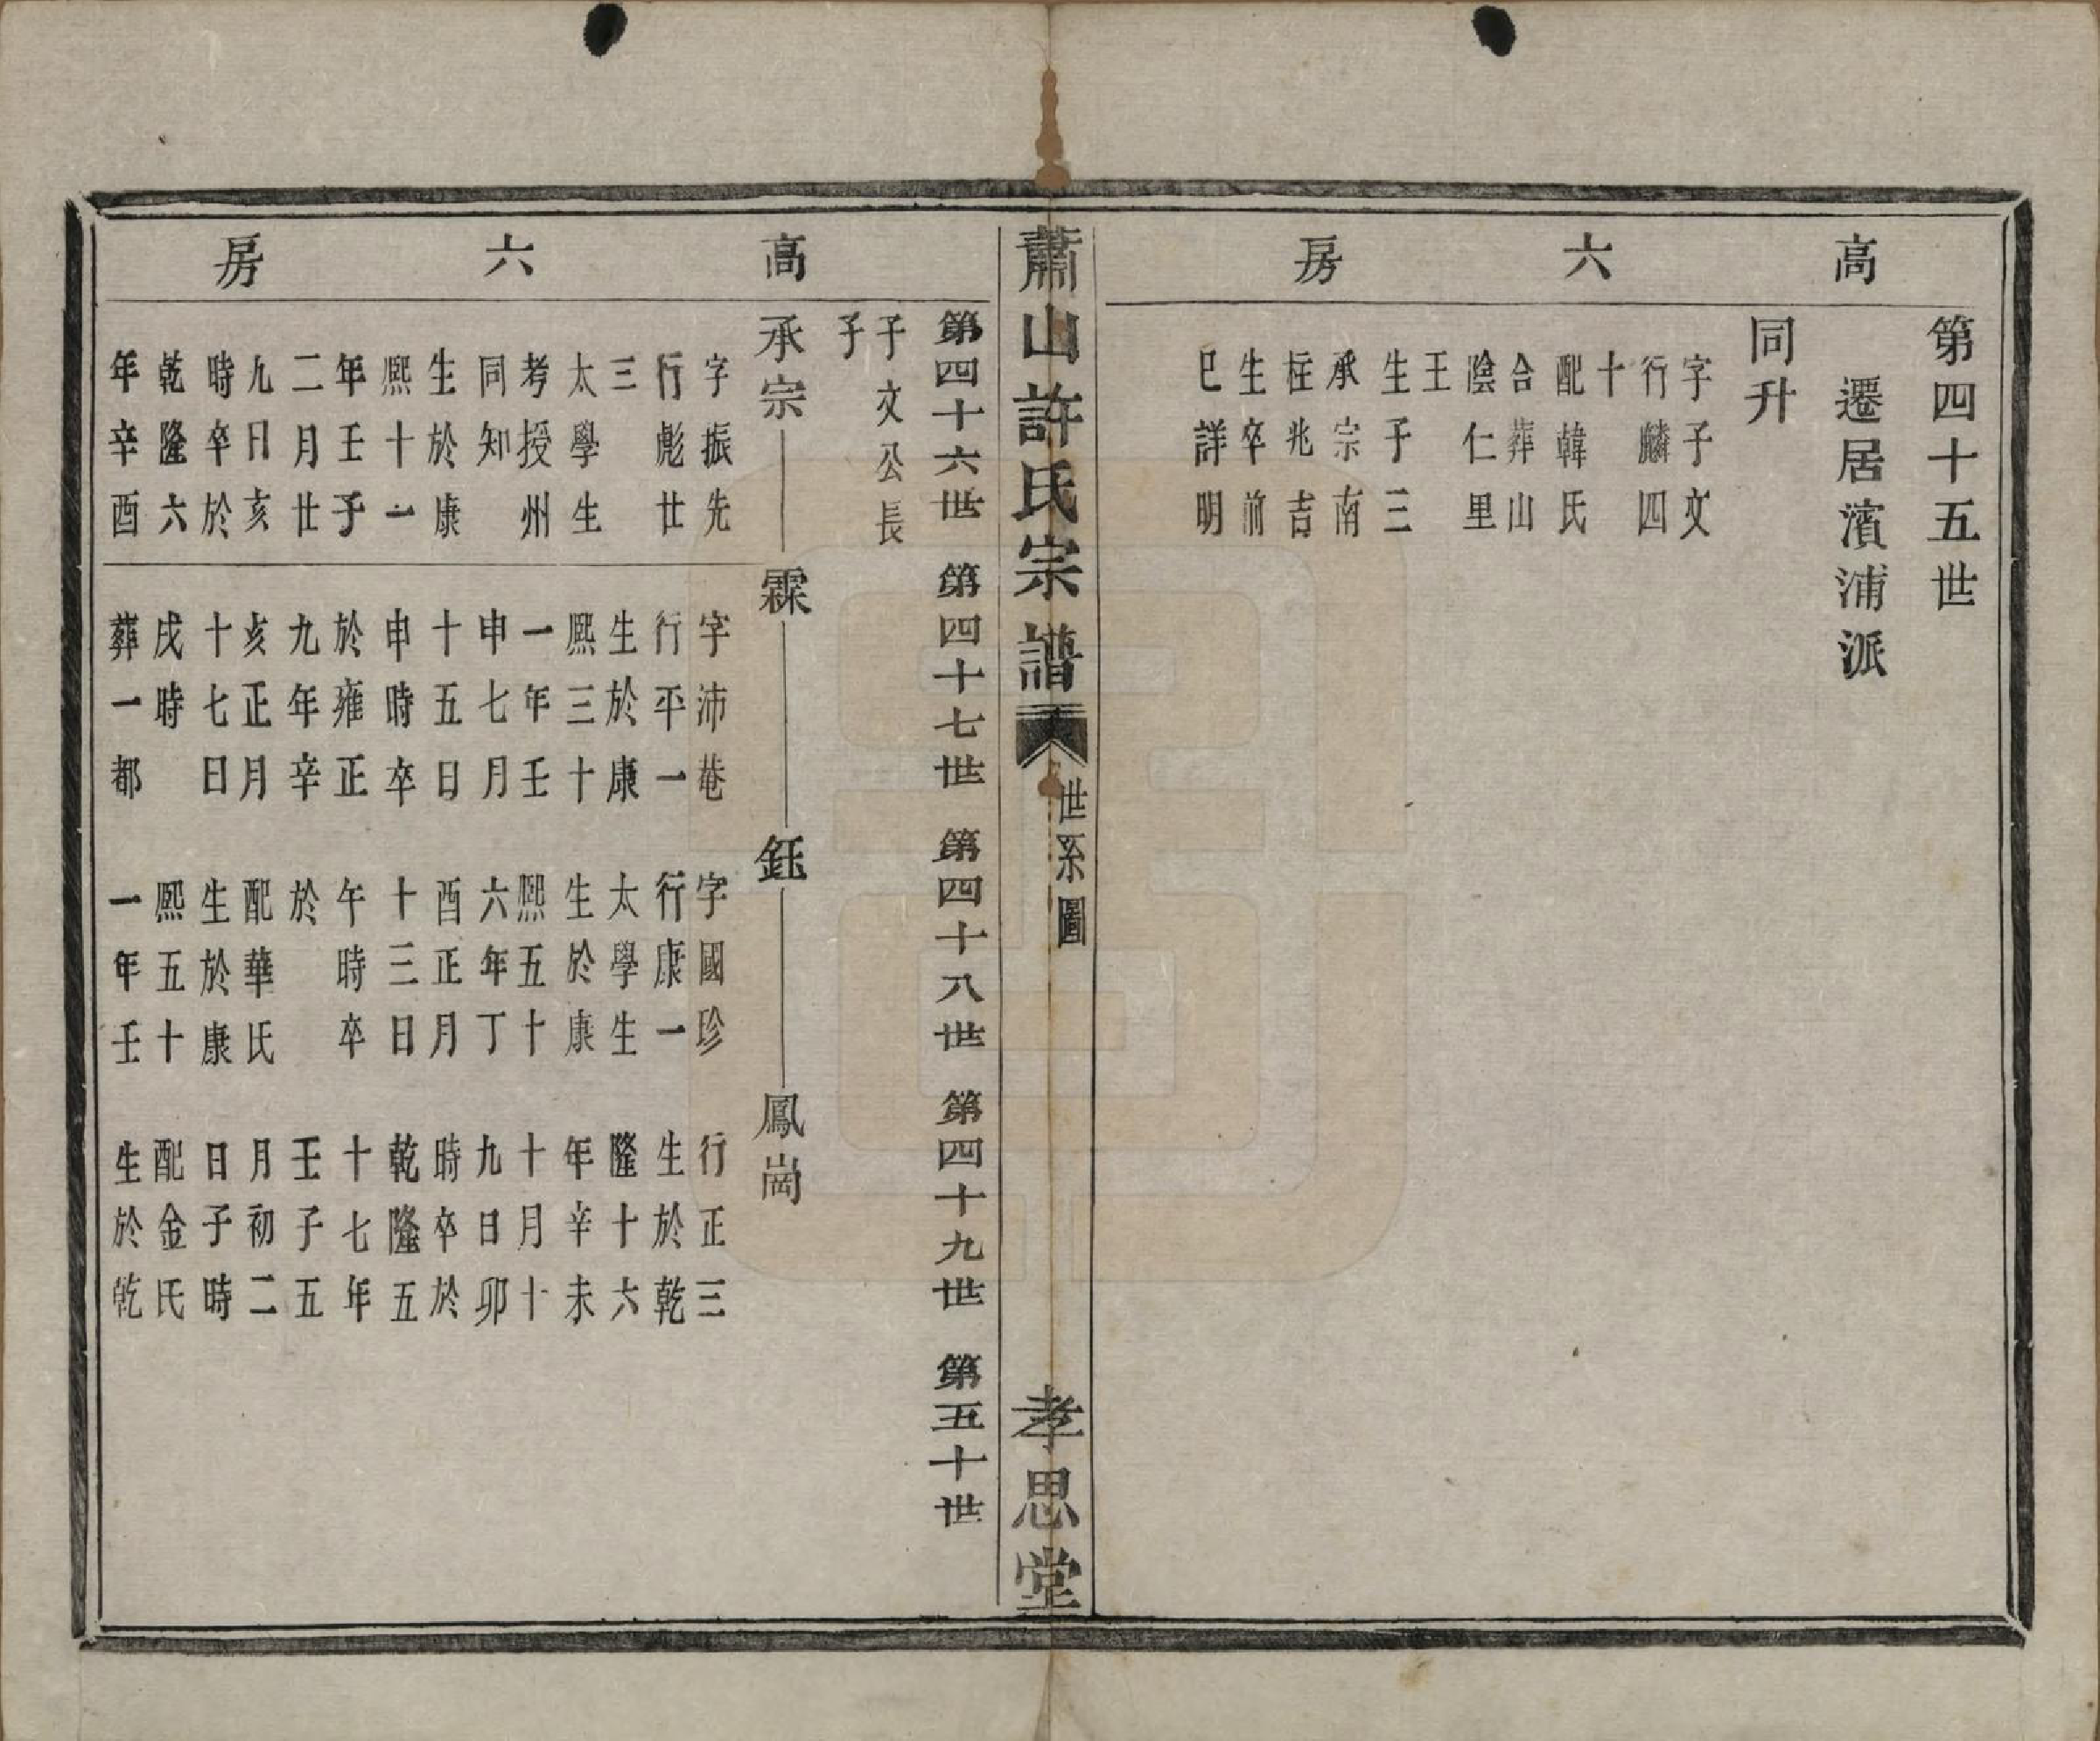 高六房
第四十五世
遷居濱浦派
同升
字子文
行麟四
十
配韓氏
合葬山
陰仁里
王
生子三
承宗南
枉兆吉
生卒前
巳詳明
蕭山許氏宗譜
世系圖
孝思堂
高六房
第四十六世
第四十七世
第四十八世
第四十九世
第五十世
子文公長
子
承宗
字振先
行彪廿
三
太學生
考授州
同知
生於康
熙十一
年壬子
二月廿
九日亥
時卒於
乾隆六
年辛酉
霖
字沛菴
行平一
生於康
熙三十
一年壬
申七月
十五日
申時卒
於雍正
九年辛
亥正月
十七日
戌時
葬一都
鈺
字國珍
行康一
太學生
生於康
熙五十
六年丁
酉正月
十三日
午時卒
於
配華氏
生於康
熙五十
一年壬
鳳崗
行正三
生於乾
隆十六
年辛未
十月十
九日卯
時卒於
乾隆五
十七年
壬子五
月初二
日子時
配金氏
生於乾